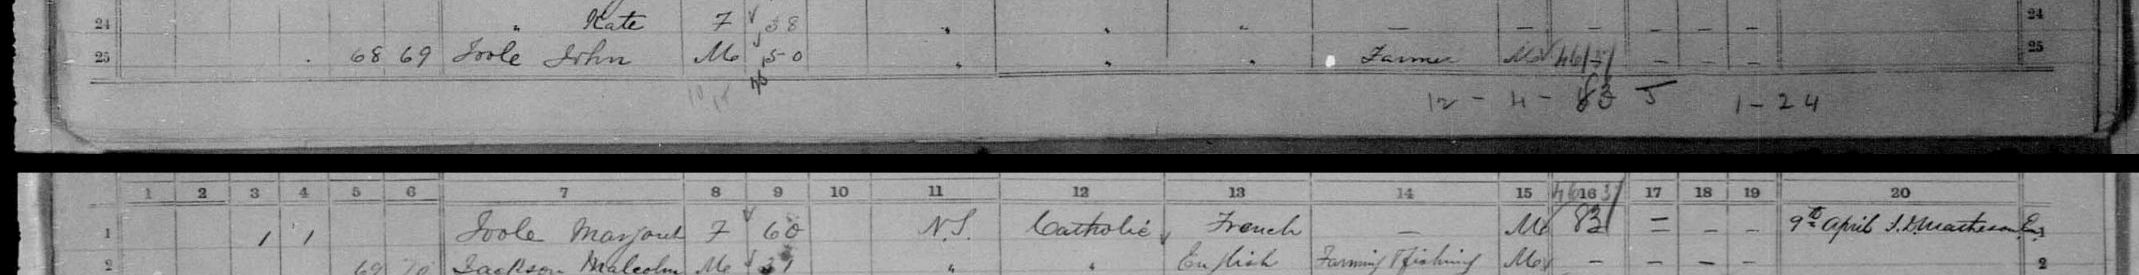 24 " Kate F 38 " " " — — — — — — 24
25 68 69 Joole John M 50 " " " Farmer M — — — 25
12 - 4 - 83 5 1 - 24
1 2 3 4 5 6 7 8 9 10 11 12 13 14 15 16 17 18 19 20
1 1 1 Joole Margaret F 60 N.S. Catholic French — M 83 = - - 9th April J. D. Matheson En. 1
2 69 70 Jackson Malcolm M 31 " " English Farming & fishing M - - - - 2